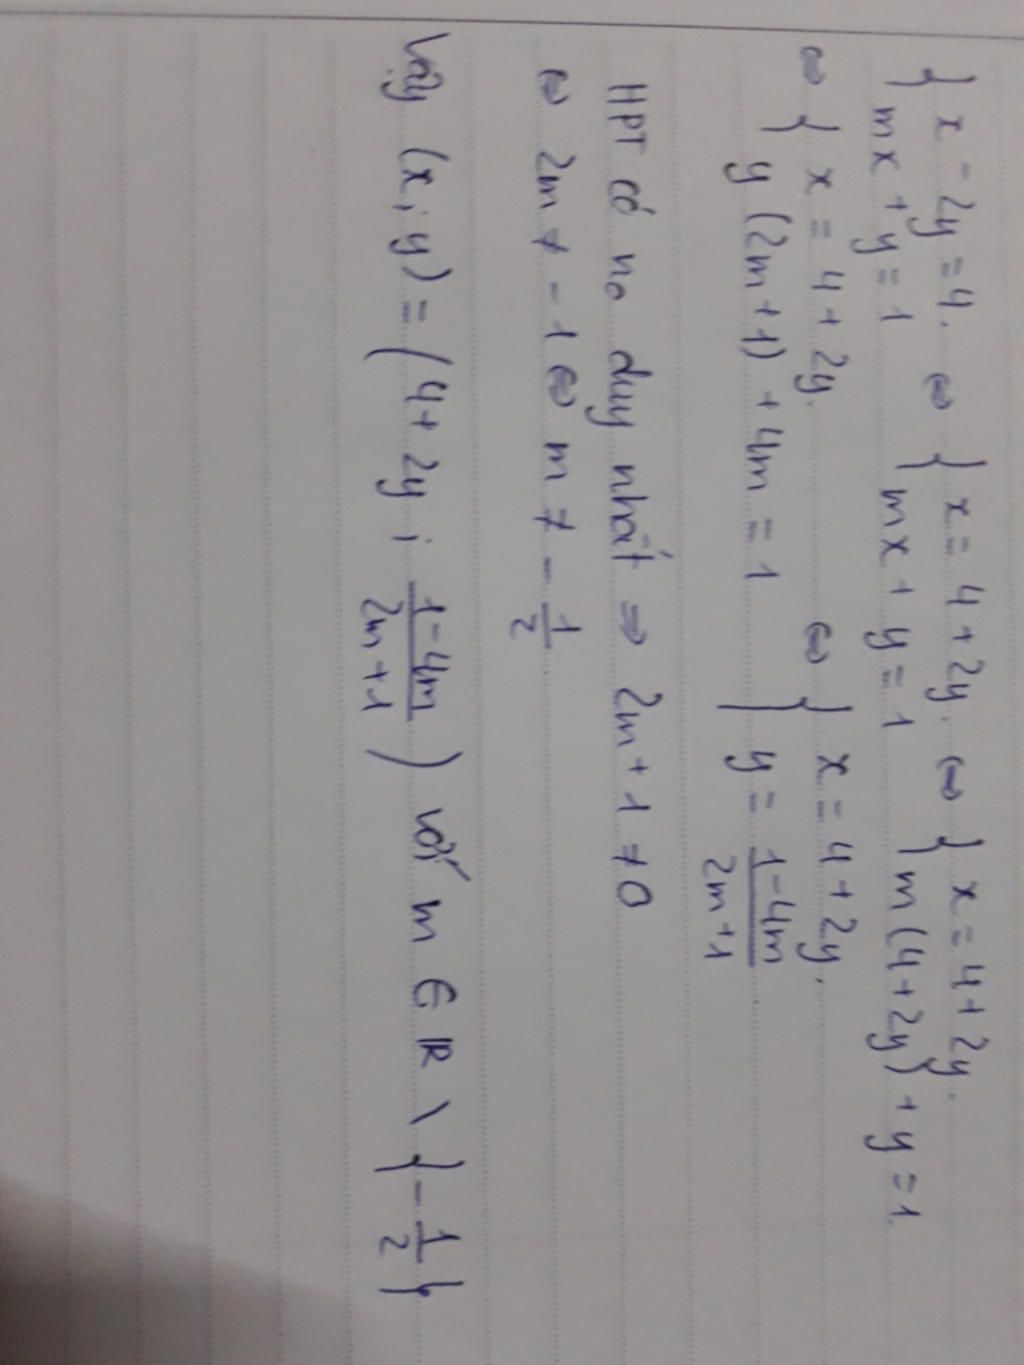 { x - 2y = 4. ⇔ { x = 4 + 2y. ⇔ { x = 4 + 2y.
mx + y = 1 mx + y = 1 m(4 + 2y) + y = 1
⇔ { x = 4 + 2y. ⇔ { x = 4 + 2y.
y(2m + 1) + 4m = 1 y = \frac{1 - 4m}{2m + 1}.
HPT có no duy nhất ⇒ 2m + 1 ≠ 0
⇔ 2m ≠ -1 ⇔ m ≠ -\frac{1}{2}.
Vậy (x; y) = (4 + 2y; \frac{1 - 4m}{2m + 1}) với m ∈ ℝ \ {-\frac{1}{2}}